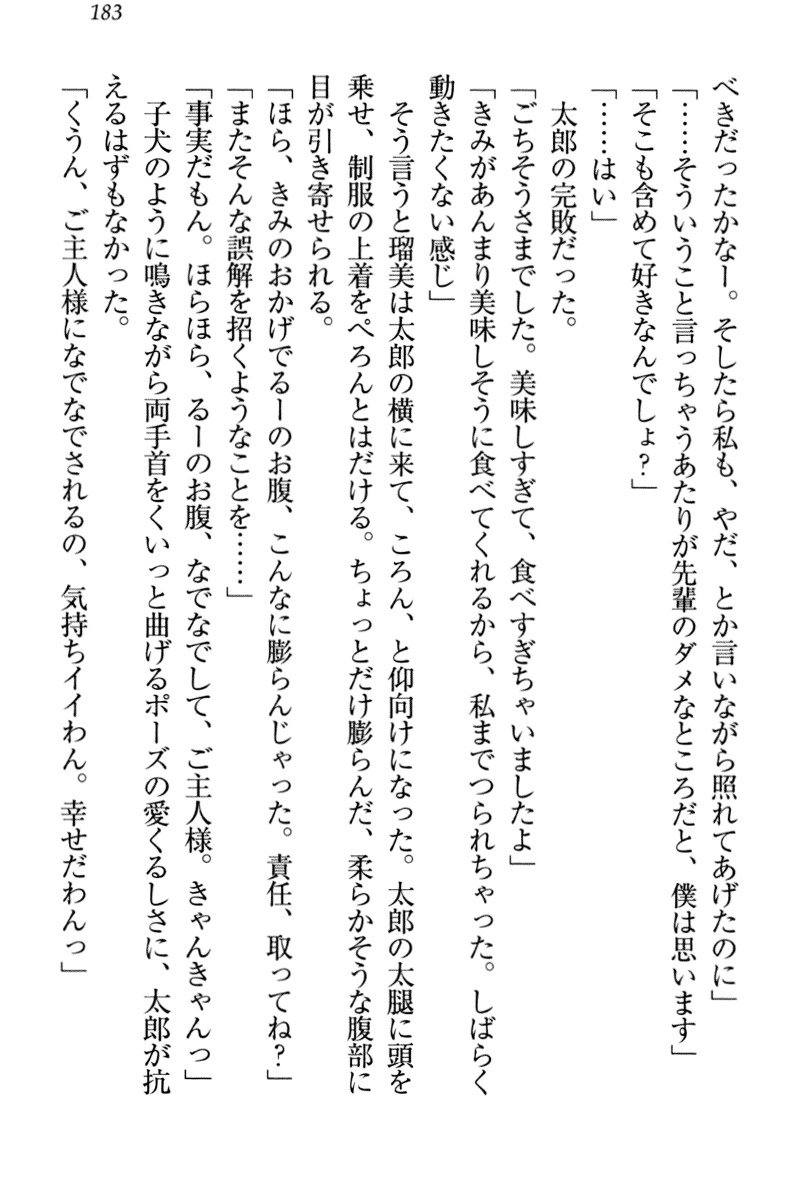 183
べきだったかなー。そしたら私も、やだ、とか言いながら照れてあげたのに」
「……そういうこと言っちゃうあたりが先輩のダメなところだと、僕は思います」
「そこも含めて好きなんでしょ？」
「……はい」
太郎の完敗だった。
「ごちそうさまでした。美味しすぎて、食べすぎちゃいましたよ」
「きみがあんまり美味しそうに食べてくれるから、私までつられちゃった。しばらく
動きたくない感じ」
そう言うと瑠美は太郎の横に来て、ころん、と仰向けになった。太郎の太腿に頭を
乗せ、制服の上着をぺろんとはだける。ちょっとだけ膨らんだ、柔らかそうな腹部に
目が引き寄せられる。
「ほら、きみのおかげでるーのお腹、こんなに膨らんじゃった。責任、取ってね？」
「またそんな誤解を招くようなことを……」
「事実だもん。ほらほら、るーのお腹、なでなでして、ご主人様。きゃんきゃんっ」
子犬のように鳴きながら両手首をくいっと曲げるポーズの愛くるしさに、太郎が抗
えるはずもなかった。
「くうん、ご主人様になでなでされるの、気持ちイイわん。幸せだわんっ」